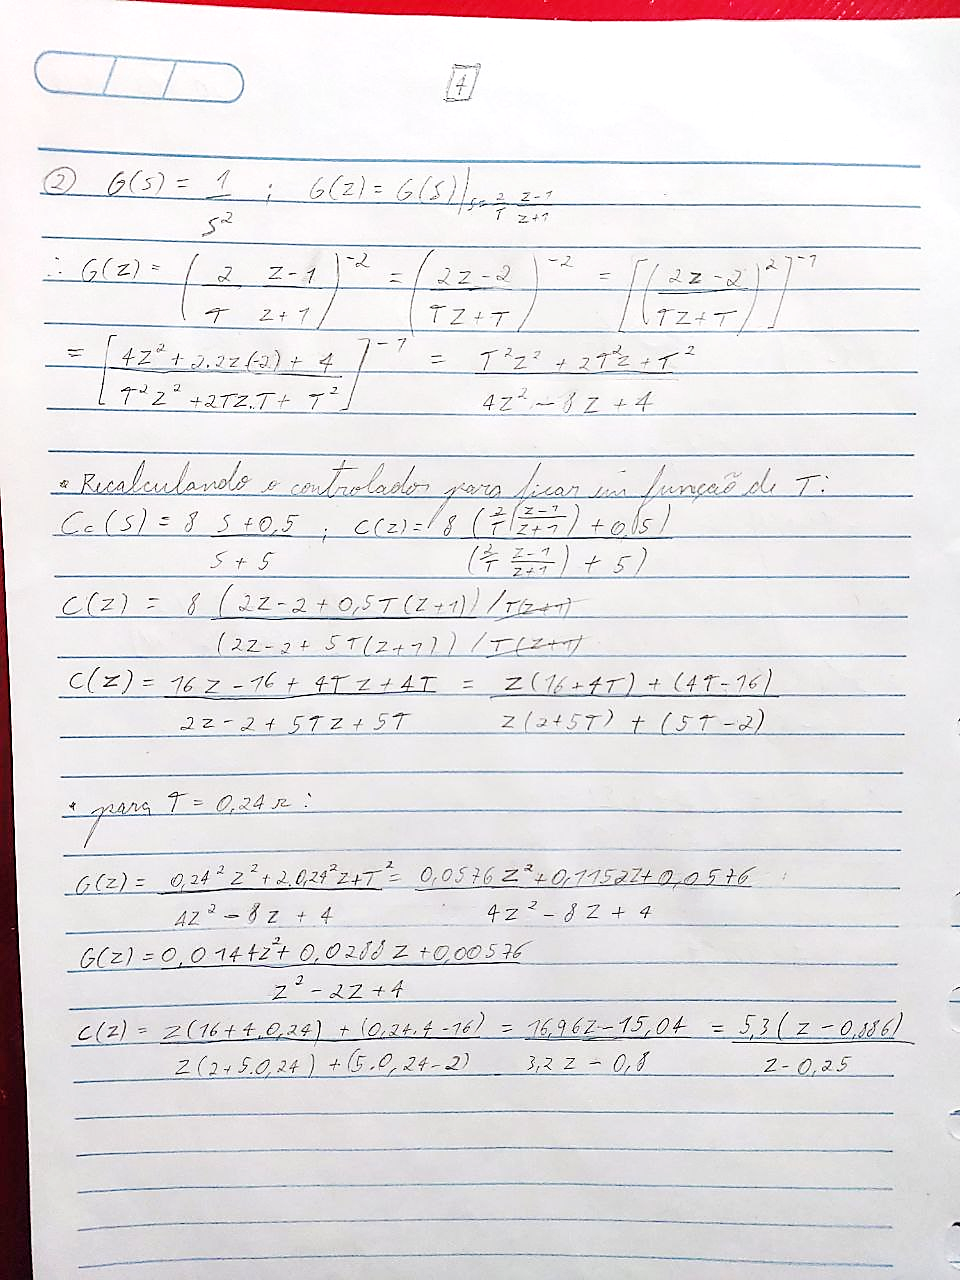 4
② G(s) = 1/s² ; G(z) = G(s)|s=2/T z-1/z+1
∴ G(z) = (2/T z-1/z+1)^-2 = (2z-2/Tz+T)^-2 = [(2z-2/Tz+T)²]^-1
= [4z²+2.2z(-2)+4/T²z²+2Tz.T+T²]^-1 = T²z²+2T²z+T²/4z²-8z+4
• Recalculando o controlador para ficar em função de T:
Cc(s) = 8 s+0,5/s+5 ; C(z) = 8 (2/T(z-1/z+1)+0,5)/(2/T z-1/z+1)+5)
C(z) = 8 (2z-2+0,5T(z+1))/T(z+1)/(2z-2+5T(z+1))/T(z+1)
C(z) = 16z-16+4Tz+4T/2z-2+5Tz+5T = z(16+4T)+(4T-16)/z(2+5T)+(5T-2)
• para T = 0,24s :
G(z) = 0,24²z²+2.0,24²z+T²/4z²-8z+4 = 0,0576z²+0,1152z+0,0576/4z²-8z+4
G(z) = 0,0144z²+0,0288z+0,00576/z²-2z+4
C(z) = z(16+4.0,24)+(0,24.4-16)/z(2+5.0,24)+(5.0,24-2) = 16,96z-15,04/3,2z-0,8 = 5,3(z-0,886)/z-0,25